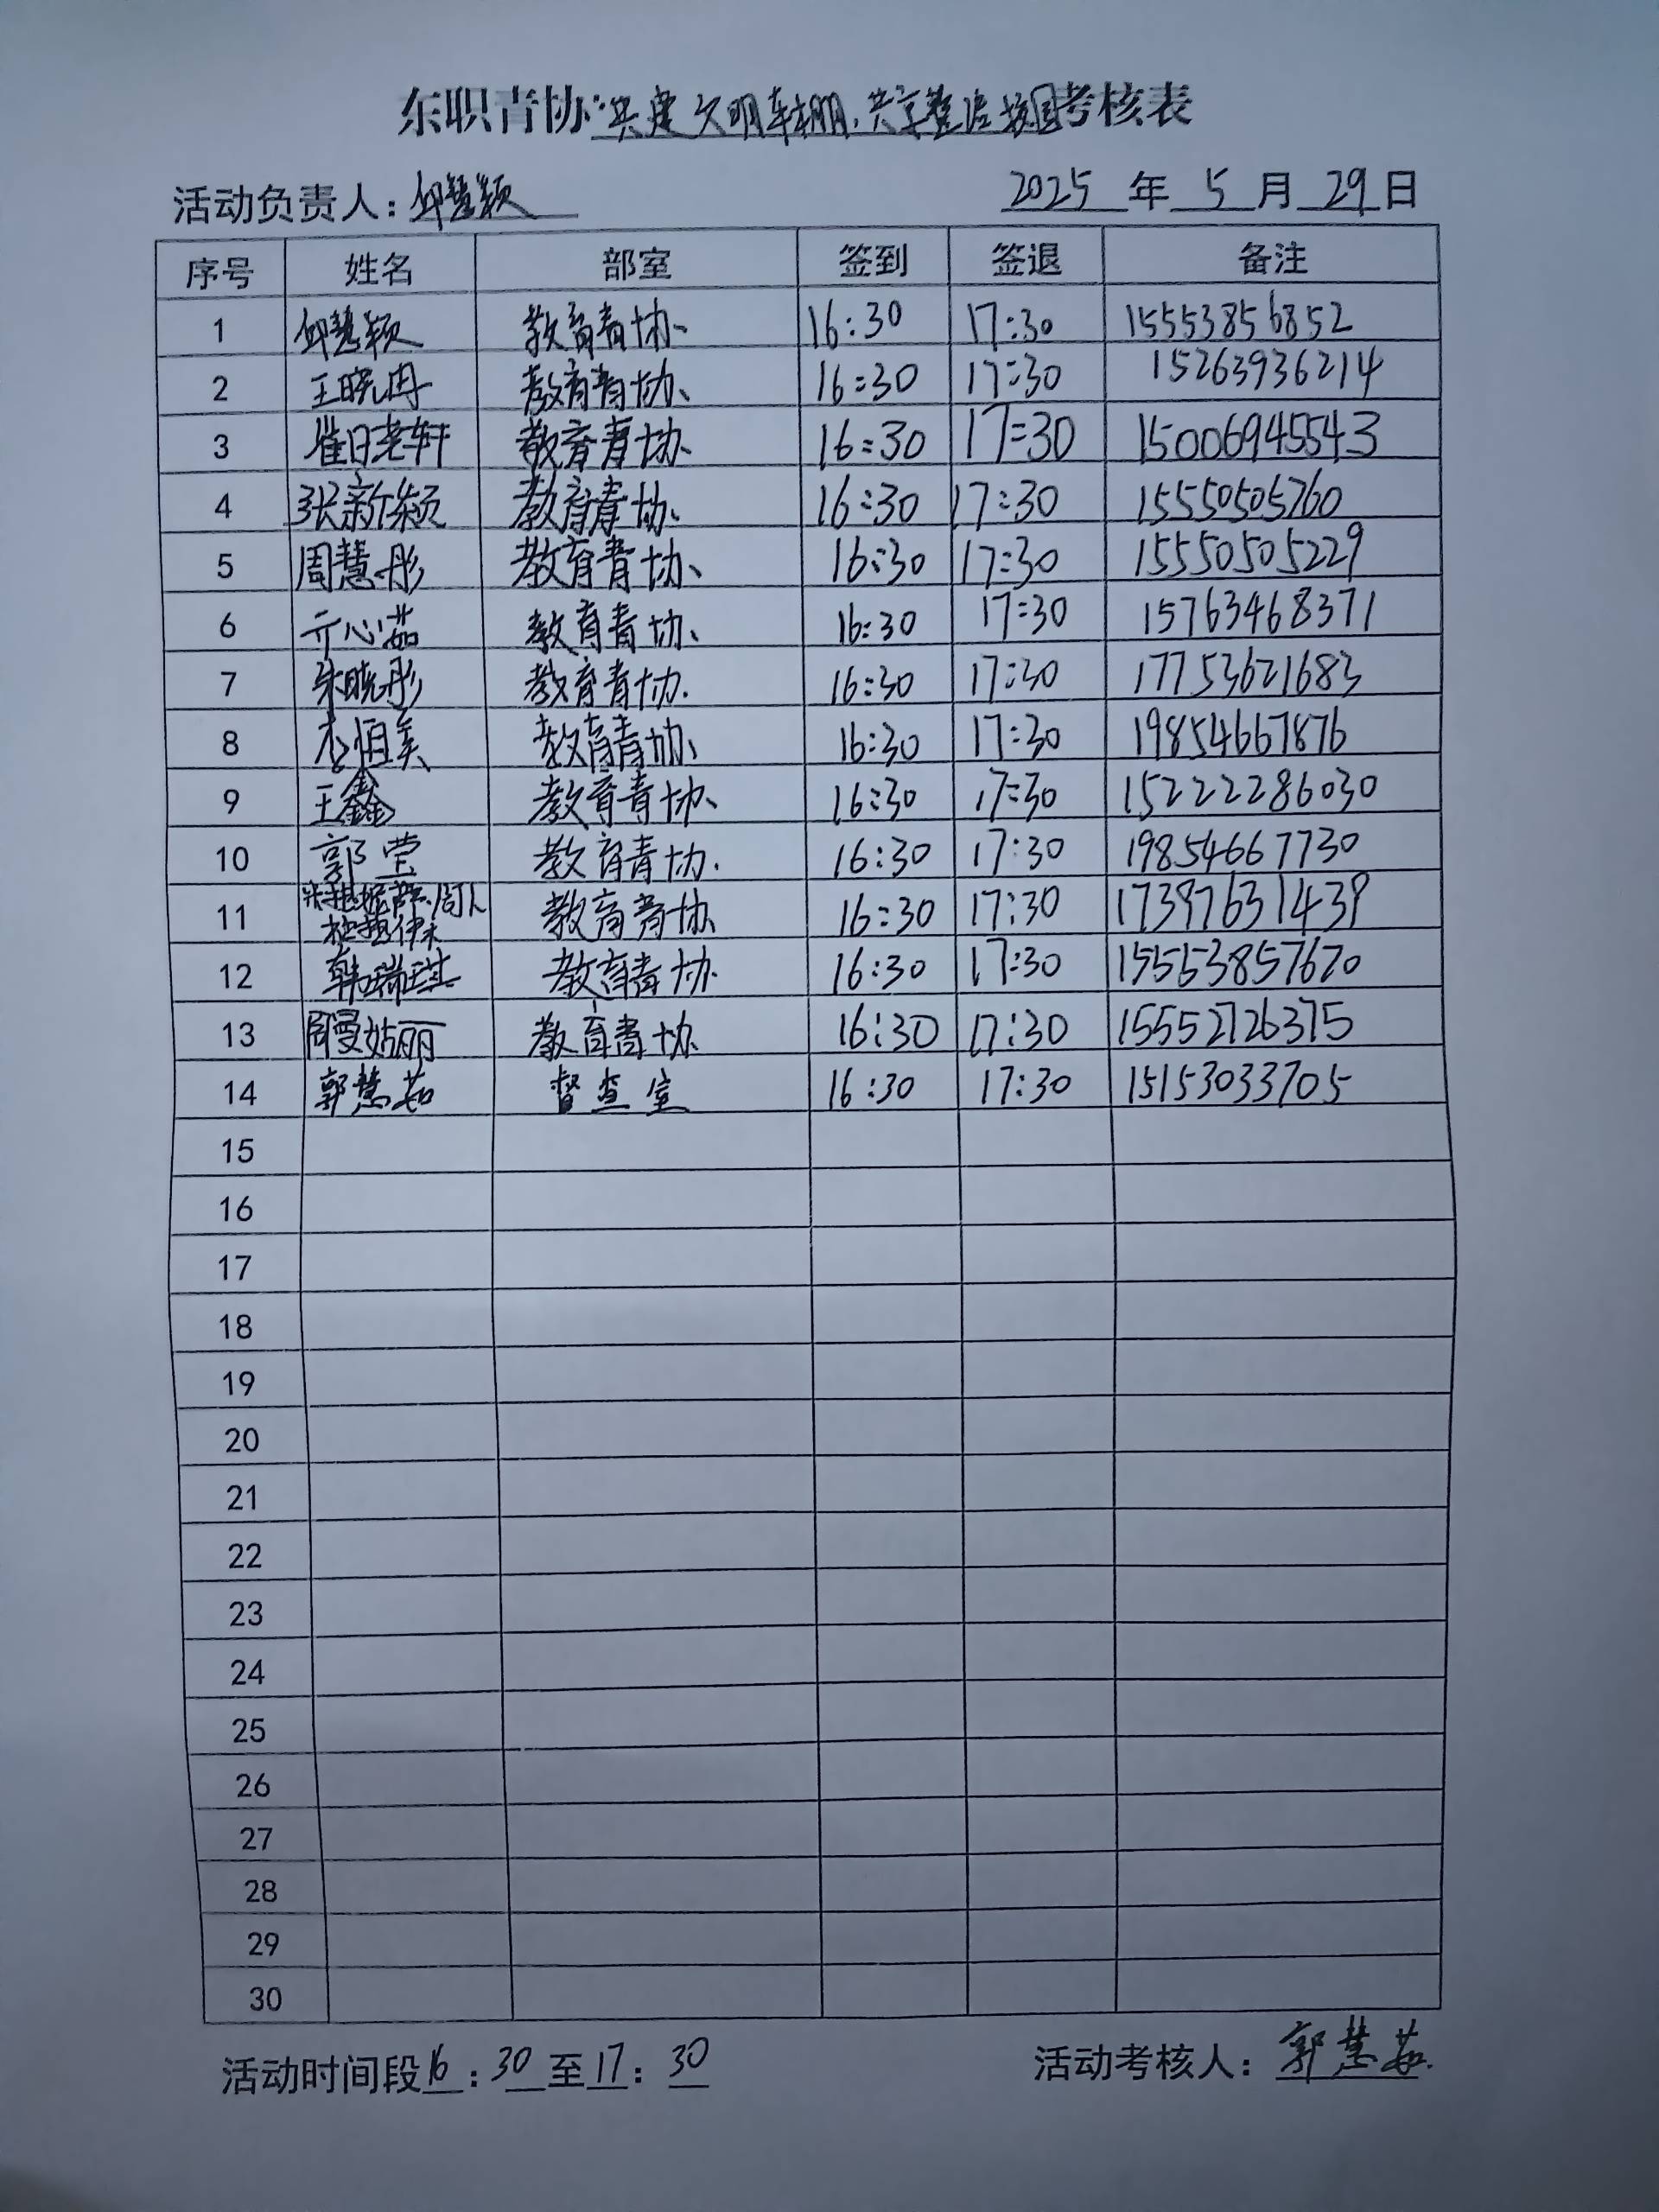 东职青协“共建文明车棚,共享整洁校园考核表
活动负责人:邱慧颖 2025 年 5 月 29 日
序号 姓名 部室 签到 签退 备注
1 邱慧颖 教育青协 16:30 17:30 15553856852
2 王晓冉 教育青协 16:30 17:30 15263936214
3 教育青协 16:30 17:30 15006945543
4 张新颖 教育青协 16:30 17:30 15550505760
5 周慧彤 教育青协 16:30 17:30 15550505229
6 亓心茹 教育青协 16:30 17:30 15763468371
7 朱晓彤 教育青协 16:30 17:30 17753621683
8 李恒美 教育青协 16:30 17:30 19854667876
9 王鑫 教育青协 16:30 17:30 15222286030
10 郭莹 教育青协 16:30 17:30 19854667730
11 教育青协 16:30 17:30 17397631439
12 韩瑞琪 教育青协 16:30 17:30 15553857670
13 教育青协 16:30 17:30 15552726375
14 郭慧茹 督查室 16:30 17:30 15153033705
15
16
17
18
19
20
21
22
23
24
25
26
27
28
29
30
活动时间段16:30至17:30 活动考核人:郭慧茹